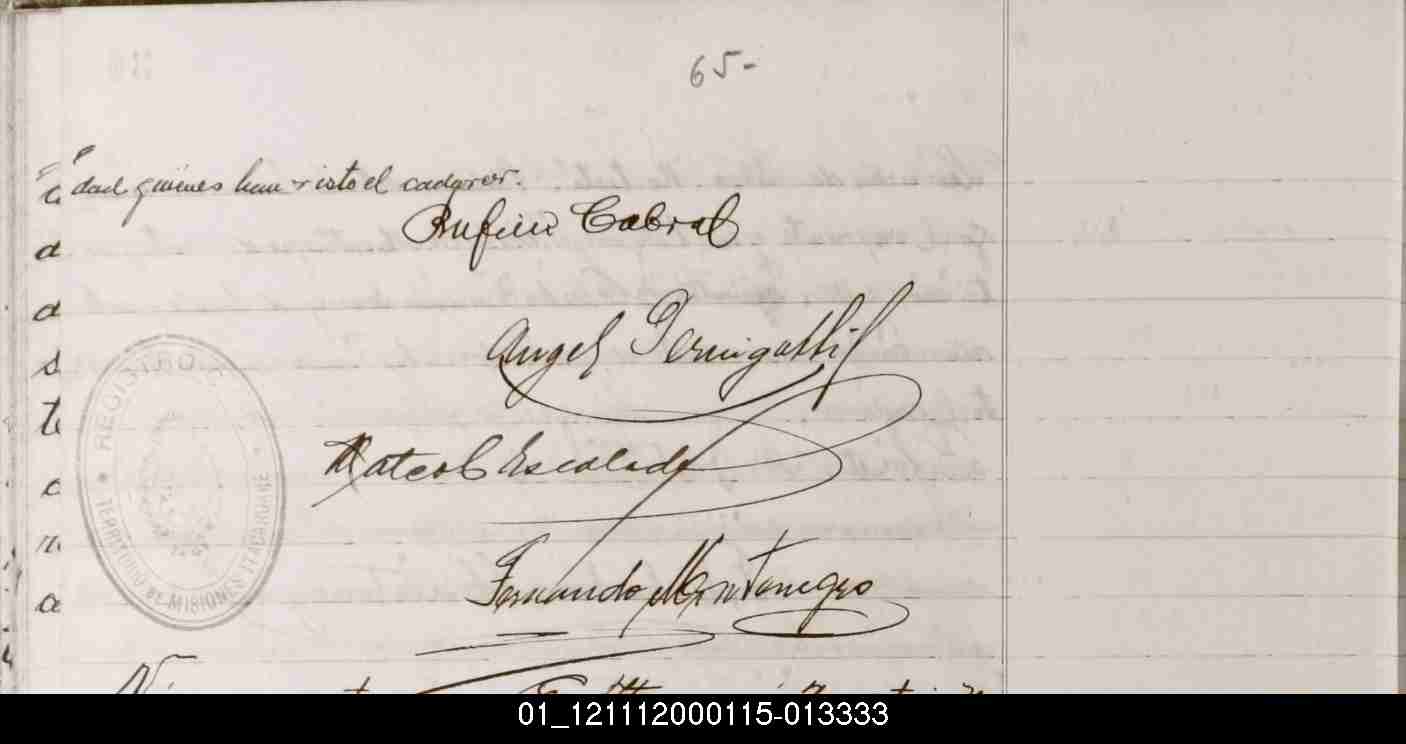 65-
dad quienes han visto el cadaver.
Rufino Cabral
a
a
s
Angel Pernigotti
REGISTRO
te
Mateo Escalada
TERRITORIO DE MISIONES ITACARUARE
a
Fernando Montenegro
01_121112000115-013333